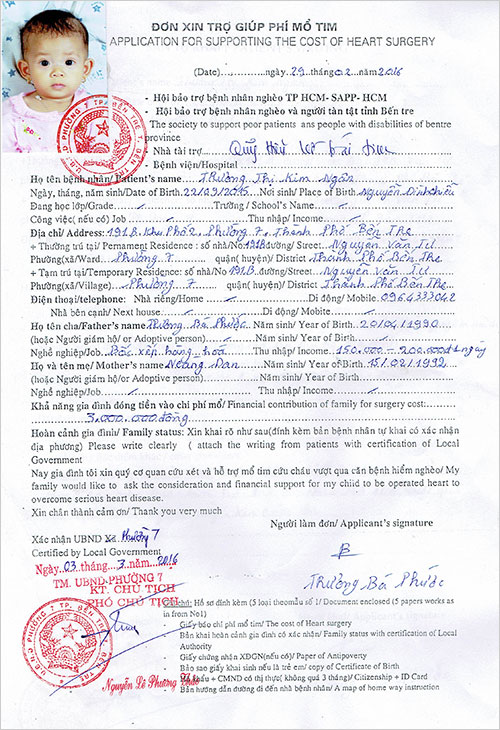 ĐƠN XIN TRỢ GIÚP PHÍ MỔ TIM
APPLICATION FOR SUPPORTING THE COST OF HEART SURGERY
(Date)............ngày 29 tháng 02 năm 2016
- Hội bảo trợ bệnh nhân nghèo TP HCM- SAPP- HCM
- Hội bảo trợ bệnh nhân nghèo và người tàn tật tỉnh Bến tre
The society to support poor patients ans people with disabilities of bentre
province
- Nhà tài trợ
- Bệnh viên/Hospital
Họ tên bệnh nhân/ Patient's name Trương Thị Kim Ngân
Ngày, tháng, năm sinh/Date of Birth 22/09/2015 Nơi sinh/ Place of Birth Nguyễn Đình Chiểu
Đang học lớp/Grade / Trường / School's Name /
Công việc( nếu có) Job / Thu nhập/ Income /
Địa chỉ/ Address: 191B, Khu Phố 2, Phường 7, Thành Phố Bến Tre
+ Thường trú tại/ Pemament Residence : số nhà/No 191B đường/ Street Nguyễn Văn Tư
Phường(xã/Ward Phường 7 quận( huyện)/ District Thành Phố Bến Tre
+ Tạm trú tại/Temporary Residence: số nhà No 191B đường/Street Nguyễn Văn Tư
Phường(xã/Village) Phường 7 quận( huyện)/ District Thành Phố Bến Tre
Điện thoại/telephone: Nhà riêng/Home / Di động/ Mobile 0964333042
Nhà bên cạnh/ Next house / Di động/ Mobite /
Họ tên cha/Father's name Trương Bá Phước Năm sinh/ Year of Birth 20/04/1990
(hoặc Người giám hộ/ or Adoptive person) / Năm sinh/ Year of Birth /
Nghề nghiệp/Job Bốc xếp hàng hóa Thu nhập/ Income 150.000 - 200.000đ 1 ngày
Họ và tên mẹ/ Mother's name Neang Dan Năm sinh/ Year of Birth 15/02/1992
(hoặc Người giám hộ/or Adoptive person) Năm sinh/ Year of Birth
Nghề nghiệp/Job / Thu nhập/ Income /
Khả năng gia đình đóng tiền vào chi phí mổ/ Financial contribution of family for surgery cost:
5.000.000 đồng
Hoàn cảnh gia đình/ Family status: Xin khai rõ như sau(đính kèm bản bệnh nhân tự khai có xác nhận
địa phương) Please write clearly ( attach the writing from patients with certification of Local
Government
Nay gia đình tôi xin quý cơ quan cứu xét và hỗ trợ mổ tim cứu cháu vượt qua căn bệnh hiểm nghèo/ My
family would like to ask the consideration and financial support for my child to be operated heart to
overcome serious heart disease.
Xin chân thành cảm ơn/ Thank you very much
Người làm đơn/ Applicant's signature
Xác nhận UBND Xã Phường 7
Certified by Local Government
Ngày 03 tháng 3 năm 2016
TM. UBND-PHƯỜNG 7
KT. CHỦ TỊCH
PHÓ CHỦ TỊCH
Trương Bá Phước
U.B.N.D PHƯỜNG 7 TP. BẾN TRE T. BẾN TRE
Nguyễn Lê Phương Thảo
Ghi chú: Hồ sơ đính kèm (5 loại theo mẫu số 1/ Document enclosed (5 papers works as
in from No1)
- Giấy báo chi phí mổ tim/ The cost of Heart surgery
- Bản khai hoàn cảnh gia đình có xác nhận/ Family status with certification of Local
Authority
- Giấy chứng nhận XĐGN(nếu có)/ Paper of Antipoverty
- Bản sao giấy khai sinh nếu là trẻ em/ copy of Certificate of Birth
- Hộ khẩu + CMND có thị thực( không quá 3 tháng)/ Citizenship + ID Card
- Bản hướng dẫn đường đi đến nhà bệnh nhân/ A map of home way instruction